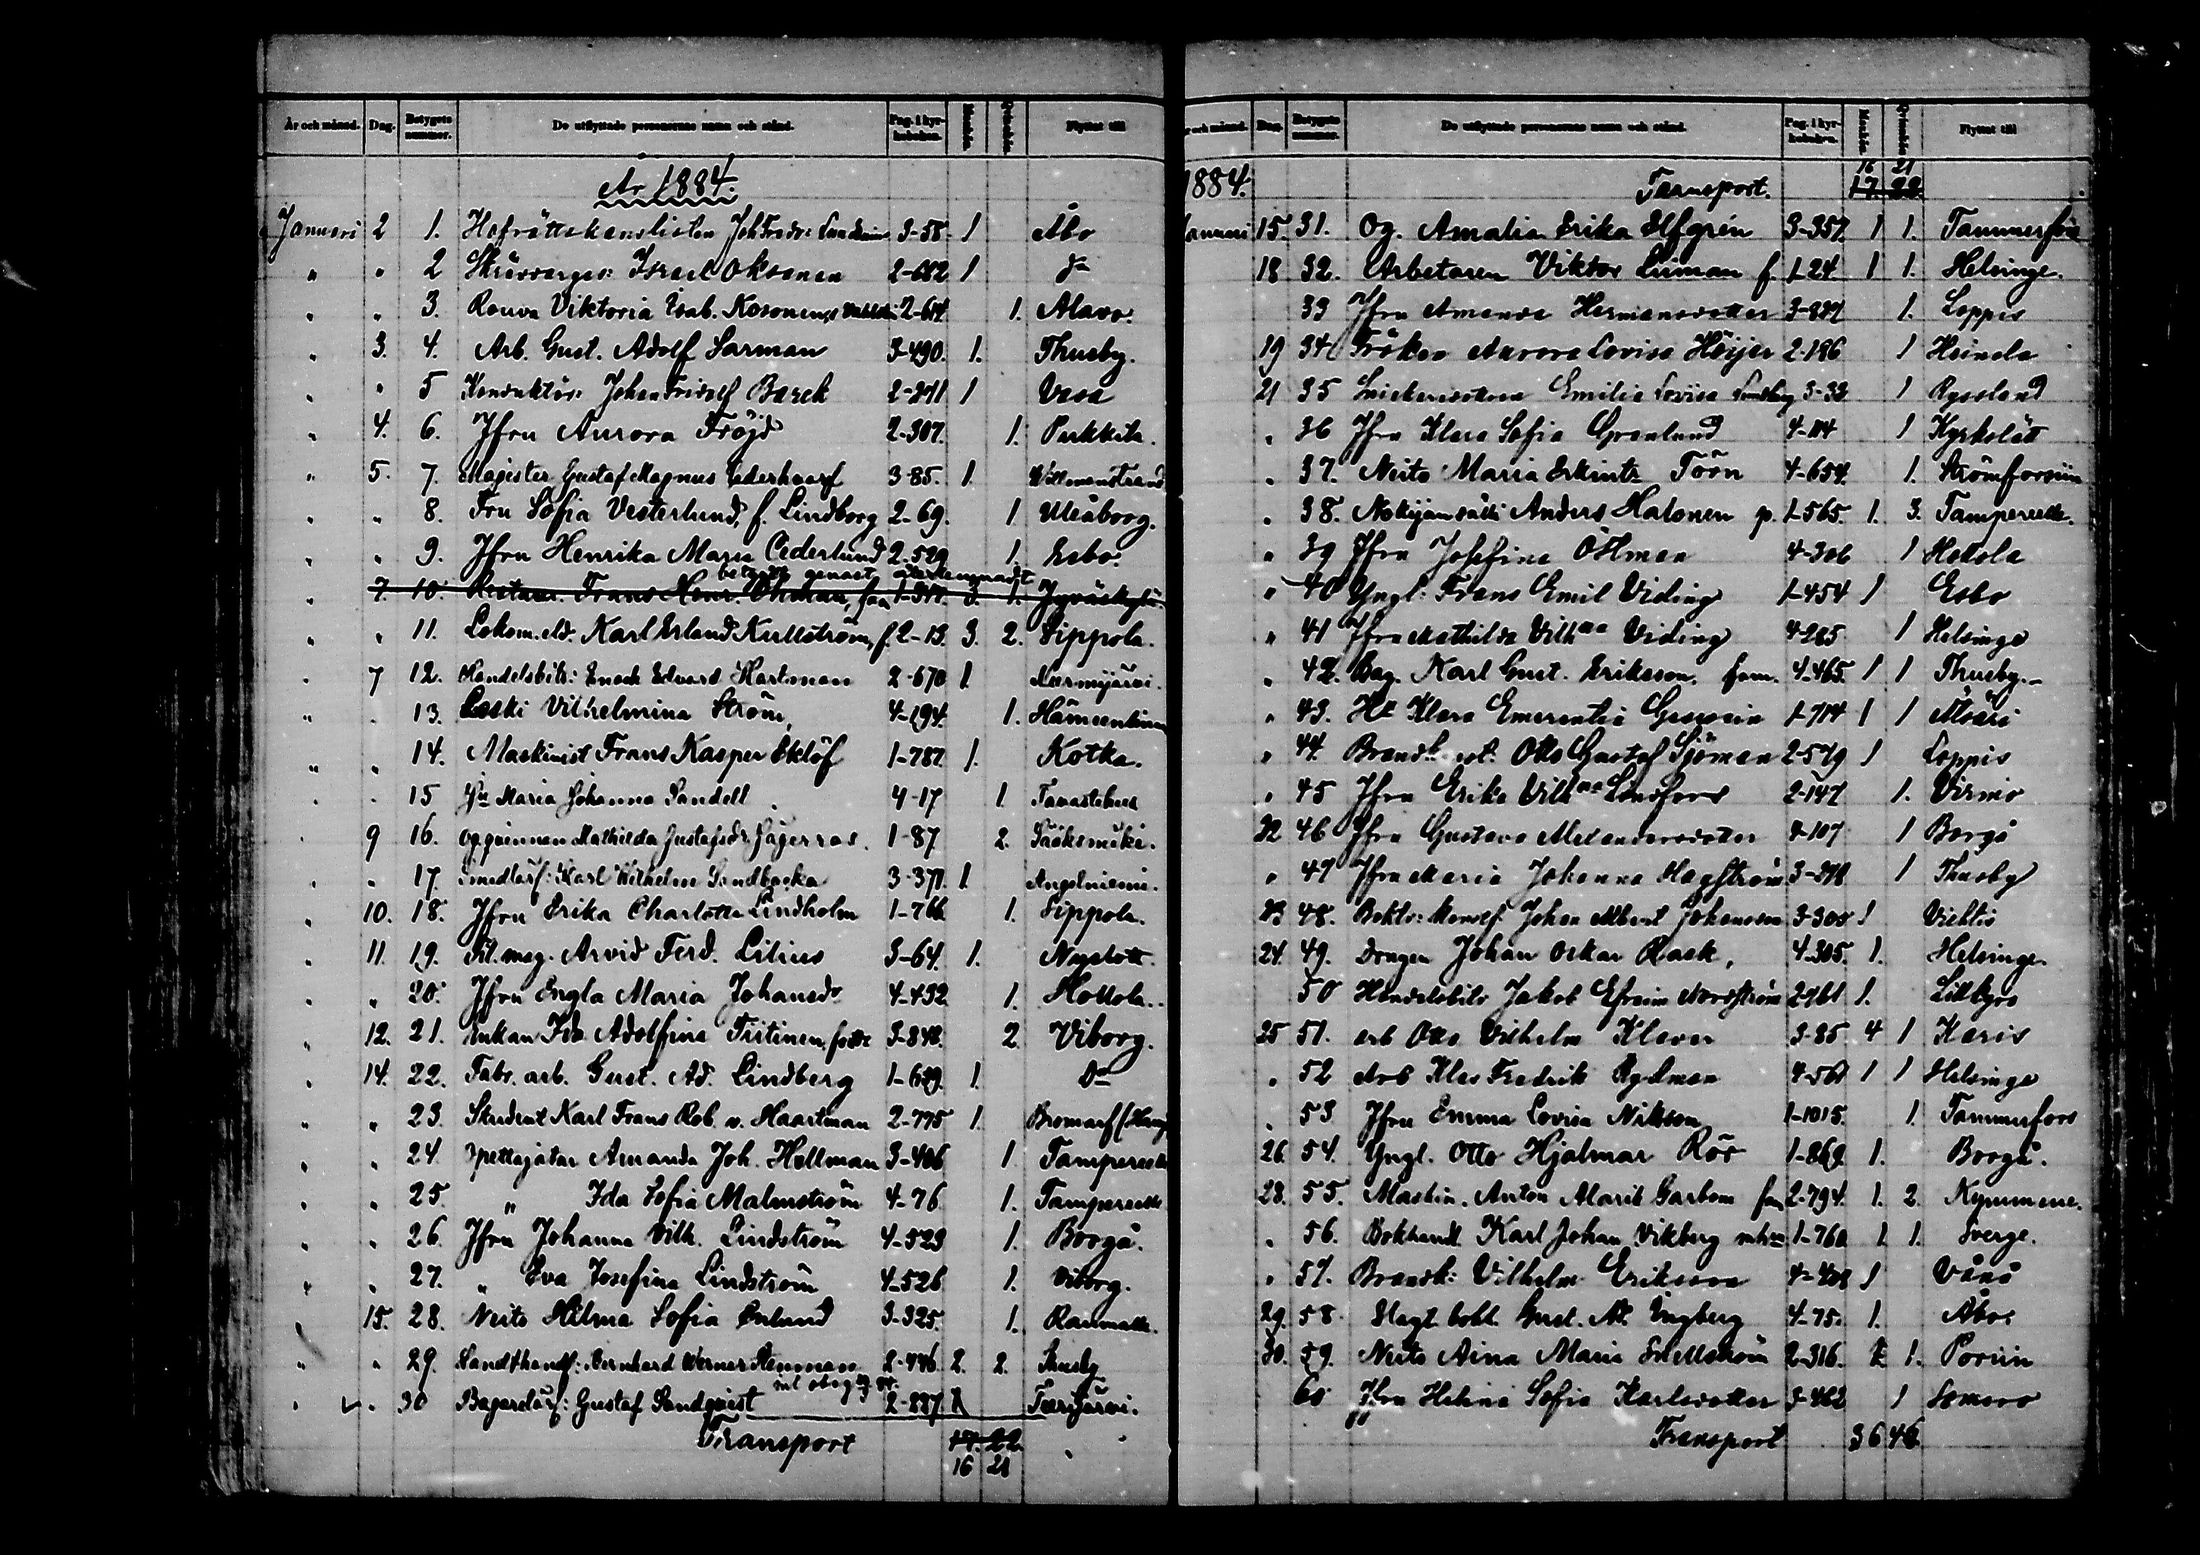 År och månad. Dag. Betygets nummer. De utflyttade personernas namn och stånd. Pag. i kyrkoboken. Mankön. Qvinkön. Flyttat till
År 1884.
Januari 2 1. Hofrättskanslisten Joh Fredr: 3-58 1 Åbo
" " 2 Israel Oksanen 2-652 1 Do
" " 3. Rouva Viktoria Esab. Kosonen, 2-614. 1. Alavo.
" 3. 4. Arb. Gust. Adolf Sarman 3-490. 1. Thusby.
" 5 Konduktör: Johan Fridolf Barck 2-271 1 Vasa
" 4. 6. Jfru Aurora Fröjd 2-307. 1. Pukkila.
" 5. 7. Magister Gustaf Magnus Cederhvarf 3-85. 1. Willmanstrand
" " 8. Fru Sofia Vesterlund, f. Lindborg 2-69. 1 Uleåborg.
" " 9. Jfru Henrika Maria Cederlund 2-529. 1. Esbo.
betyget genast
" 7. 10. Restaur. Frans Henr. Öhman, fam 1-317. 3. 1. Jyväskylä
" " 11. Lokom.eld. Karl Erland Kullström, f. 2-13. 3. 2. Sippola.
" 7 12. Handelsbitr: Enoch Edvard Hartman 2-670 1. Nurmijärvi.
" " 13. Leski Vilhelmina Ström, 4-194. 1. Hämeenlinna
" " 14. Maskinist Frans Kasper Eklöf 1-787. 1. Kotka.
" " 15 Jfru Maria Johanna Sandell 4-17 1. Tavastehus
" 9 16. Qvinnan Mathilda Gustafsdr Jägerroos. 1-87 2. Sääksmäki.
" " 17. Smedlärl: Karl Wilhelm Sandbacka 3-371. 1. Angelniemi.
" 10. 18. Jfru Erika Charlotta Lindholm 1-766 1. Sippola.
" 11. 19. Fil. mag. Arvid Ferd. Lilius 3-64. 1. Nyslott.
" " 20. Jfru Engla Maria Johansdr 4-432 1. Hollola.
" 12. 21. Enkan Ida Adolfina Tiitinen, 3-848. 2. Viborg.
" 14. 22. Fabr. arb. Gust. Ad. Lindberg 1-629. 1. Do
" " 23. Student Karl Frans Rob. v. Haartman 2-775 1. Bromarf
" " 24. Opettajatar Amanda Joh. Hellman 3-406 1 Tampereelle
" " 25. " Ida Sofia Malmström 4-76. 1. Tampereelle
" " 26. Jfru Johanna Vilh. Lindström 4-523 1. Borgå.
" " 27. " Eva Josefina Lindström 4-526 1. Viborg.
" 15. 28. Neito Hilma Sofia Enlund 3-325. 1. Raumalle.
" " 29. Landthandl: Bernhard Werner Stenman 2-446 2. 2. Thusby
" " 30 Bagarelärl: Gustaf Sandqvist 2-887 1 Tuurijärvi.
Transport 17. 22.
16 21
År och månad. Dag. Betygets nummer. De utflyttade personernas namn och stånd. Pag. i kyrkoboken. Mankön. Qvinkön. Flyttat till
16 21
1884. Transport. 17 22.
Januari 15. 31. Og. Amalia Erika Elfgrén 3-357. 1 1. Tammerfors
18 32. Arbetaren Viktor Liiman f. 1-24 1 1. Helsinge.
33 Jfru Amanda Hermansdotter 3-827 1. Loppis
19 34. Fröken Aurora Lovisa Höijer 2-186 1 Heinola
21 35 Snickerienkan Emilia Lovisa 3-33 1 Ryssland
" 36 Jfru Klara Sofia Granlund 4-114 1 Kyrkslätt
" 37. Neito Maria Erkintr Törn 4-654. 1. Strömforsiin
" 38. Anders Halonen p. 1-565. 1. 3. Tampereelle.
" 39 Jfru Josefina Östman 4-306 1 Hollola
" 40 Yngl: Frans Emil Viding 1-454 1 Esbo
" 41 Jfru Mathilda Vilhna Viding 4-285 1 Helsinge
" 42. Bag. Karl Gust. Eriksson. fam. 4-465. 1 1 Thusby.
" 43. Klara Emerentia 1-714 1 1
" 44. Otto Gustaf Sjöman 2-579 1 Loppis
" 45 Jfru Erika Vilhna Lindfors 2-147 1. Virmo
22 46 Jfru Gustava Melandersdotter 4-107 1 Borgå
" 47 Jfru Maria Johanna Hagström 3-278 1 Thusby
23 48. Johan Albert Johansson 3-300 1 Vichtis
24. 49. Drengen Johan Oskar Rask, 4-305. 1. Helsinge.
50 Handelsbitr Jakob Efraim Nordström 2-761 1. Lillkyro
25 51. Arb Otto Vilhelm Klaver 3-85 4 1 Karis
" 52 Arb Klas Fredrik Rydman 4-561 1 1 Helsinge
" 53 Jfru Emma Lovisa Nilsson 1-1015. 1. Tammerfors
26. 54. Yngl. Otto Hjalmar Rör 1-869. 1. Borgå.
28. 55. Maskin. Anton Alarik Garbom fam 2-794. 1. 2. Kymmene.
" 56. Bokhandl. Karl Johan Vikberg m hu 1-760 1. 1. Sverge.
" 57. Brandk: Vilhelm Eriksson 4-408 1 Vånå
29. 58. Gust. Ad. Engberg 4-75. 1. Åbo
30. 59. Neito Aina Maria 2-316. 1. Poriin
60 Jfru Helena Sofia Karlsdotter 3-462 1 Somero
Transport 36 46